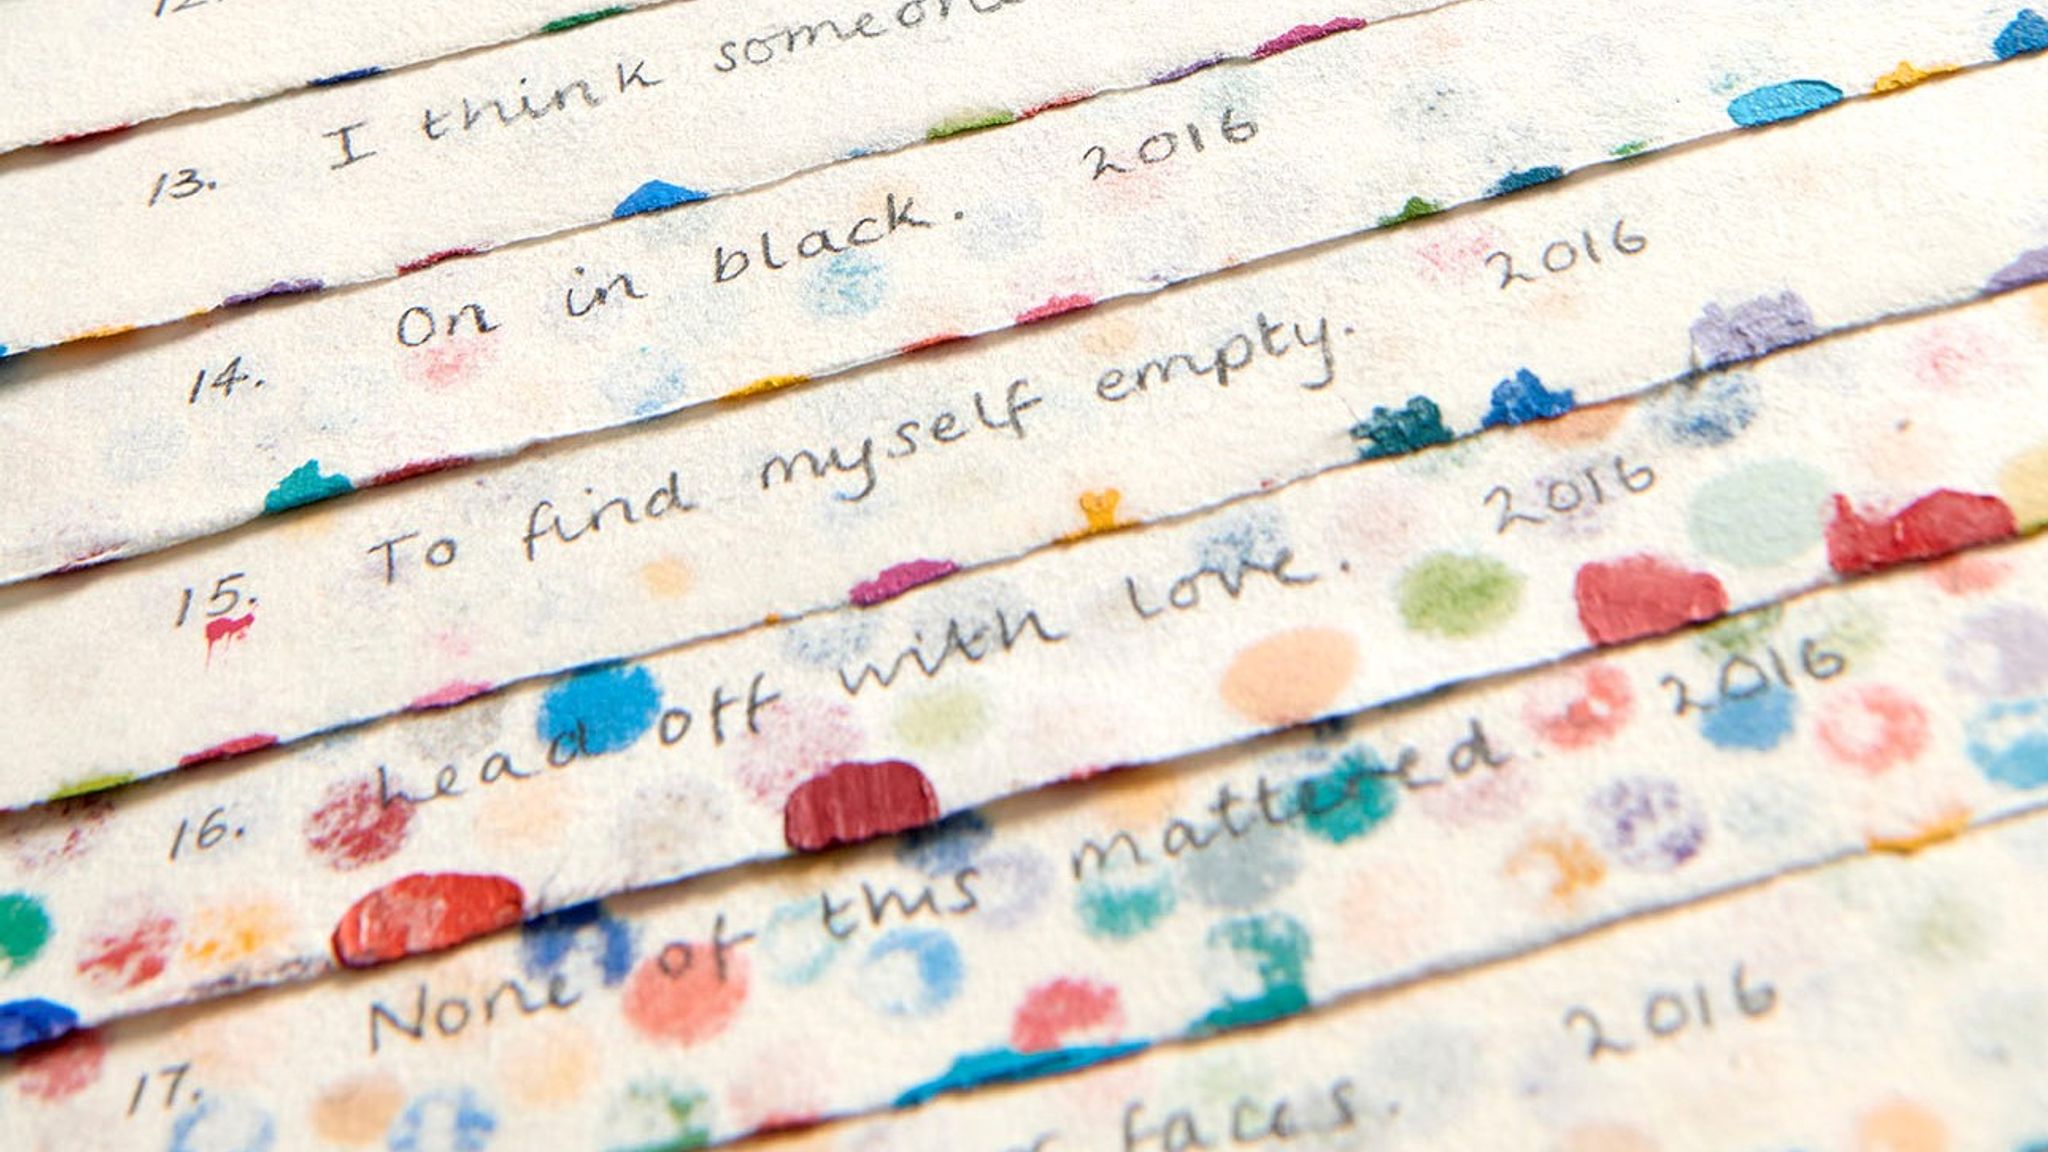 12.
13. I think someone
14. On in black. 2016
15. To find myself empty. 2016
16. Lead off with love. 2016
17. None of this mattered. 2016
faces. 2016